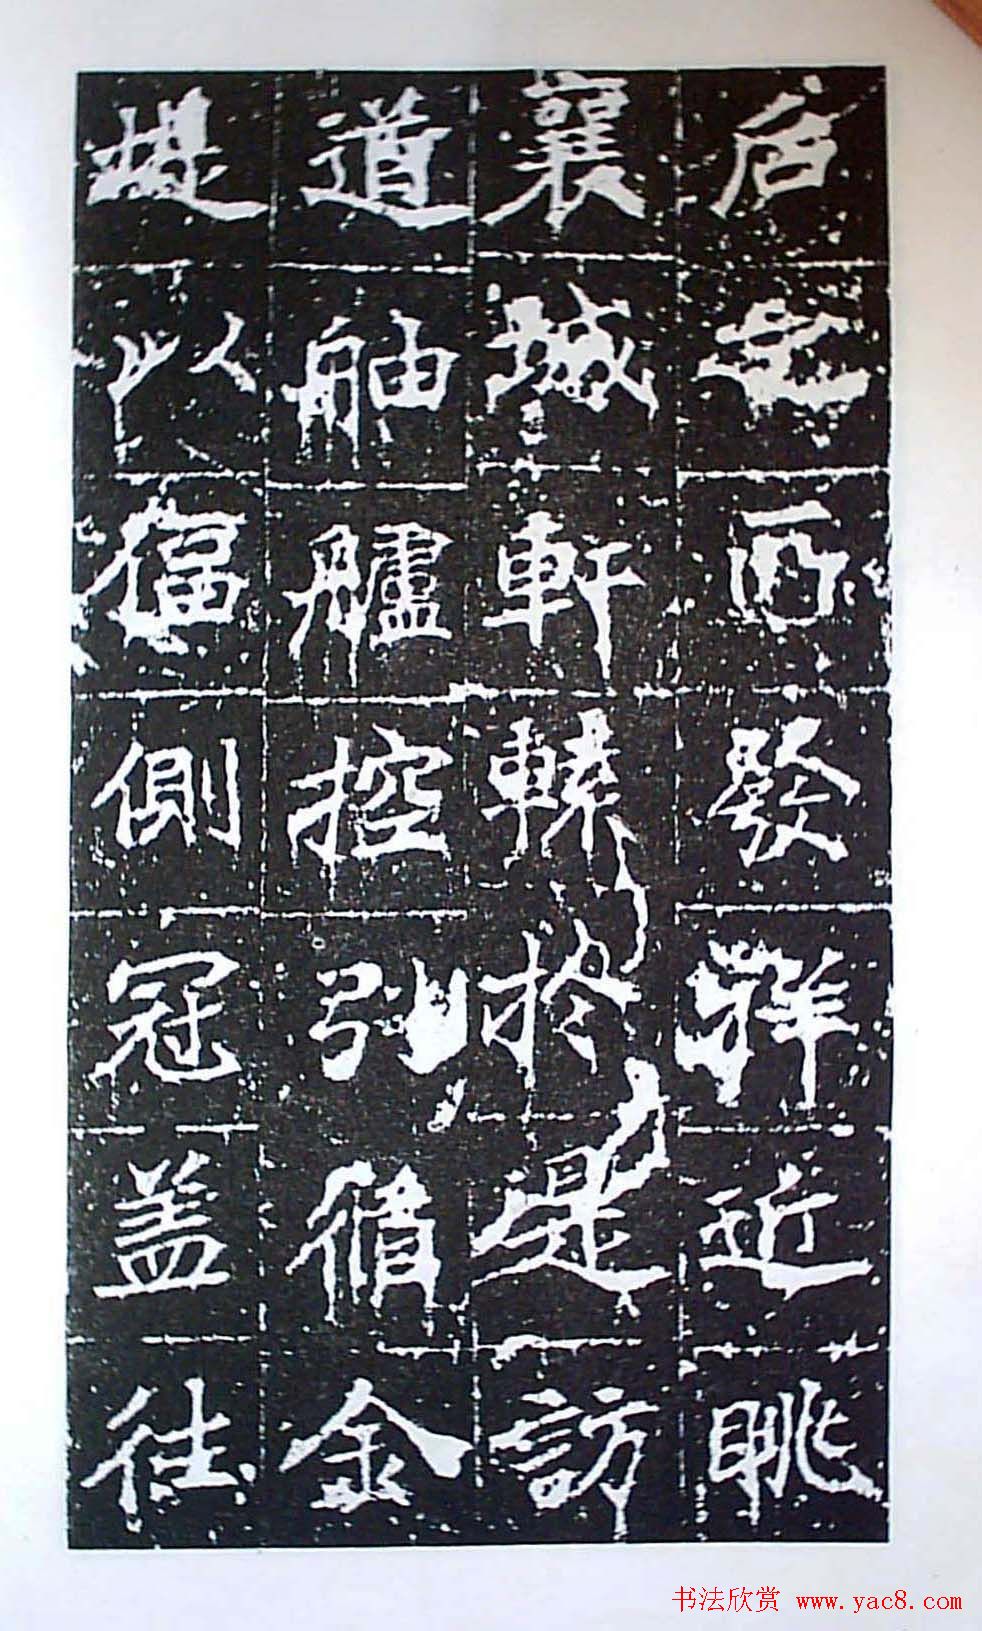 后之所發祥近眺
襄城軒轅於是訪
道舳艫控引循金
堤以偪側冠盖往
书法欣赏 www.yac8.com